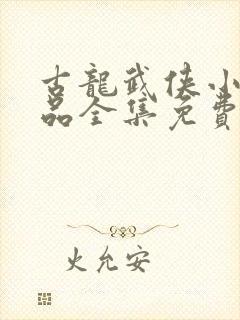 古龍武俠小
品全集免費
火允安